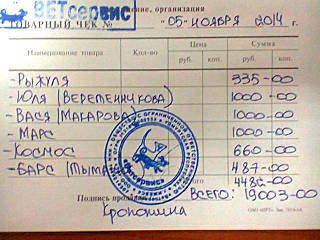 ВЕТсервис ение, организация
ТОВАРНЫЙ ЧЕК № "05" НОЯБРЯ 2014 г.
Наименование товара Кол-во Цена Сумма
руб. коп. руб. коп.
- РЫЖУЛЯ 335-00
- ЮЛЯ (ВЕРЕТЕННИКОВА) 1000-00
- ВАСЯ (МАКАРОВА) 1000-00
- МАРС 1000-00
- КОСМОС 660-00
- БАРС (ТЫМА 487-00
448 -00
Подпись продавца ВСЕГО: 19003-00
Кропотина